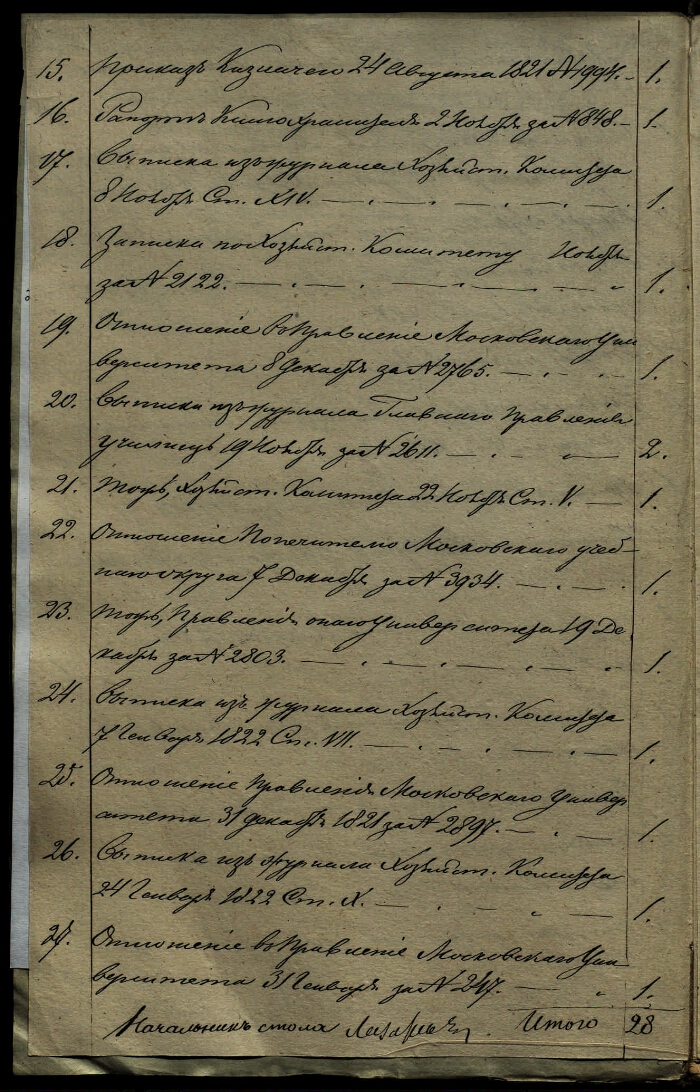 15. Приказъ Казначею 24 Августа 1821 № 1994. — 1.
16. Рапортъ Книгохранителя 2 Ноября за № 848. — 1.
17. Выписка изъ журнала Хозяйст. Комитета
8 Ноября Ст. XIV. — 1.
18. Записка по Хозяйст. Комитету Ноября
за № 2122. — 1.
19. Отношеніе въ Правленіе Московскаго Уни
верситета 8 Декабря за № 2765. — 1.
20. Выписка изъ журнала Главнаго Правленія
училищъ 19 Ноября за № 2611. — 2.
21. Тожъ, Хозяйст. Комитета 22 Ноября Ст. V. — 1.
22. Отношеніе Попечителю Московскаго учеб-
наго округа 7 Декабря за № 3934. — 1.
23. Тожъ, Правленія онаго Университета 19 Де
кабря за № 2803. — 1.
24. Выписка изъ журнала Хозяйст. Комитета
7 Генваря 1822 Ст. VII. — 1.
25. Отношеніе Правленія Московскаго Универ
ситета 31 декабря 1821 за № 2897. — 1.
26. Выписка изъ журнала Хозяйст. Комитета
24 Генваря 1822 Ст. X. — 1.
27. Отношеніе въ Правленіе Московскаго Уни
верситета 31 Генваря за № 247. — 1.
Начальникъ стола Итого 28